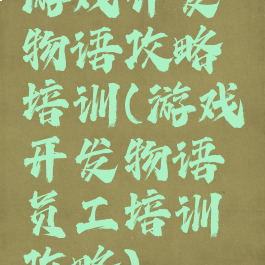 游戏开发
物语攻略
培训(游戏
开发物语
员工培训
攻略)